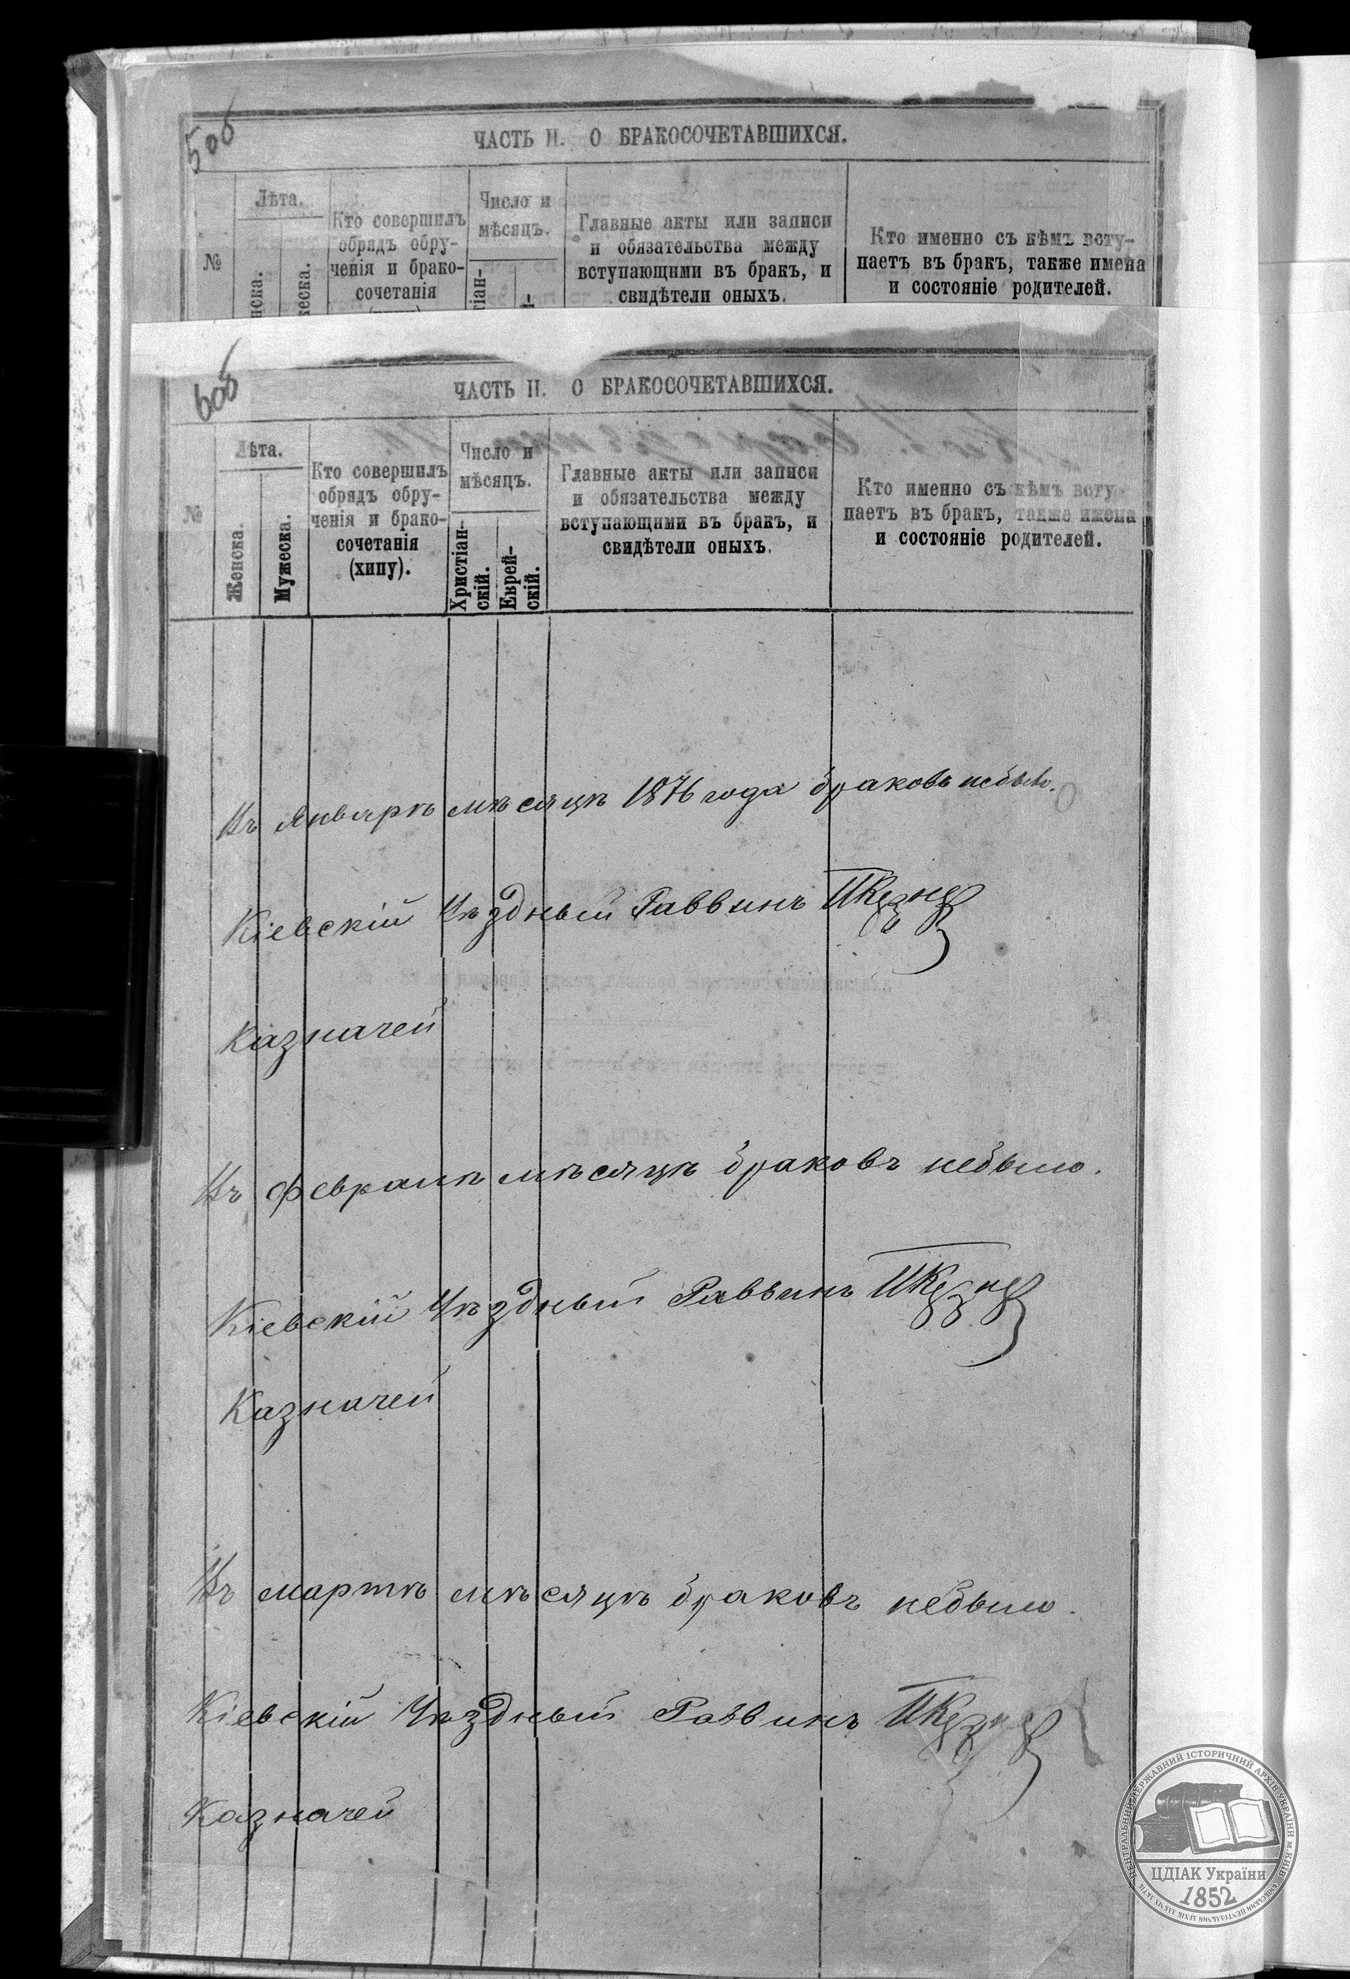 50б
ЧАСТЬ II. О БРАКОСОЧЕТАВШИХСЯ.
№
Лѣта.
Кто совершилъ
обрядъ обру-
ченія и брако-
сочетанія
Число и
мѣсяцъ.
Главные акты или записи
и обязательства между
вступающими въ бракъ, и
свидѣтели оныхъ.
Кто именно съ кѣмъ всту-
паетъ въ бракъ, также имена
и состояніе родителей.
60б
ЧАСТЬ II. О БРАКОСОЧЕТАВШИХСЯ.
№
Лѣта.
Женска.
Мужеска.
Кто совершилъ
обрядъ обру-
ченія и брако-
сочетанія
(хипу).
Число и
мѣсяцъ.
Христіан-
скій.
Еврей-
скій.
Главные акты или записи
и обязательства между
вступающими въ бракъ, и
свидѣтели оныхъ.
Кто именно съ кѣмъ всту-
паетъ въ бракъ, также имена
и состояніе родителей.
Въ Январѣ мѣсяцѣ 1876 года браковъ небыло.
Кіевскій Уѣздный Раввинъ
Казначей
Въ Февралѣ мѣсяцѣ браковъ небыло.
Кіевскій Уѣздный Раввинъ
Казначей
Въ мартѣ мѣсяцѣ браковъ небыло.
Кіевскій Уѣздный Раввинъ
Казначей
ЦЕНТРАЛЬНИЙ ДЕРЖАВНИЙ ІСТОРИЧНИЙ АРХІВ УКРАЇНИ м. КИЇВ
ЦДІАК України
1852